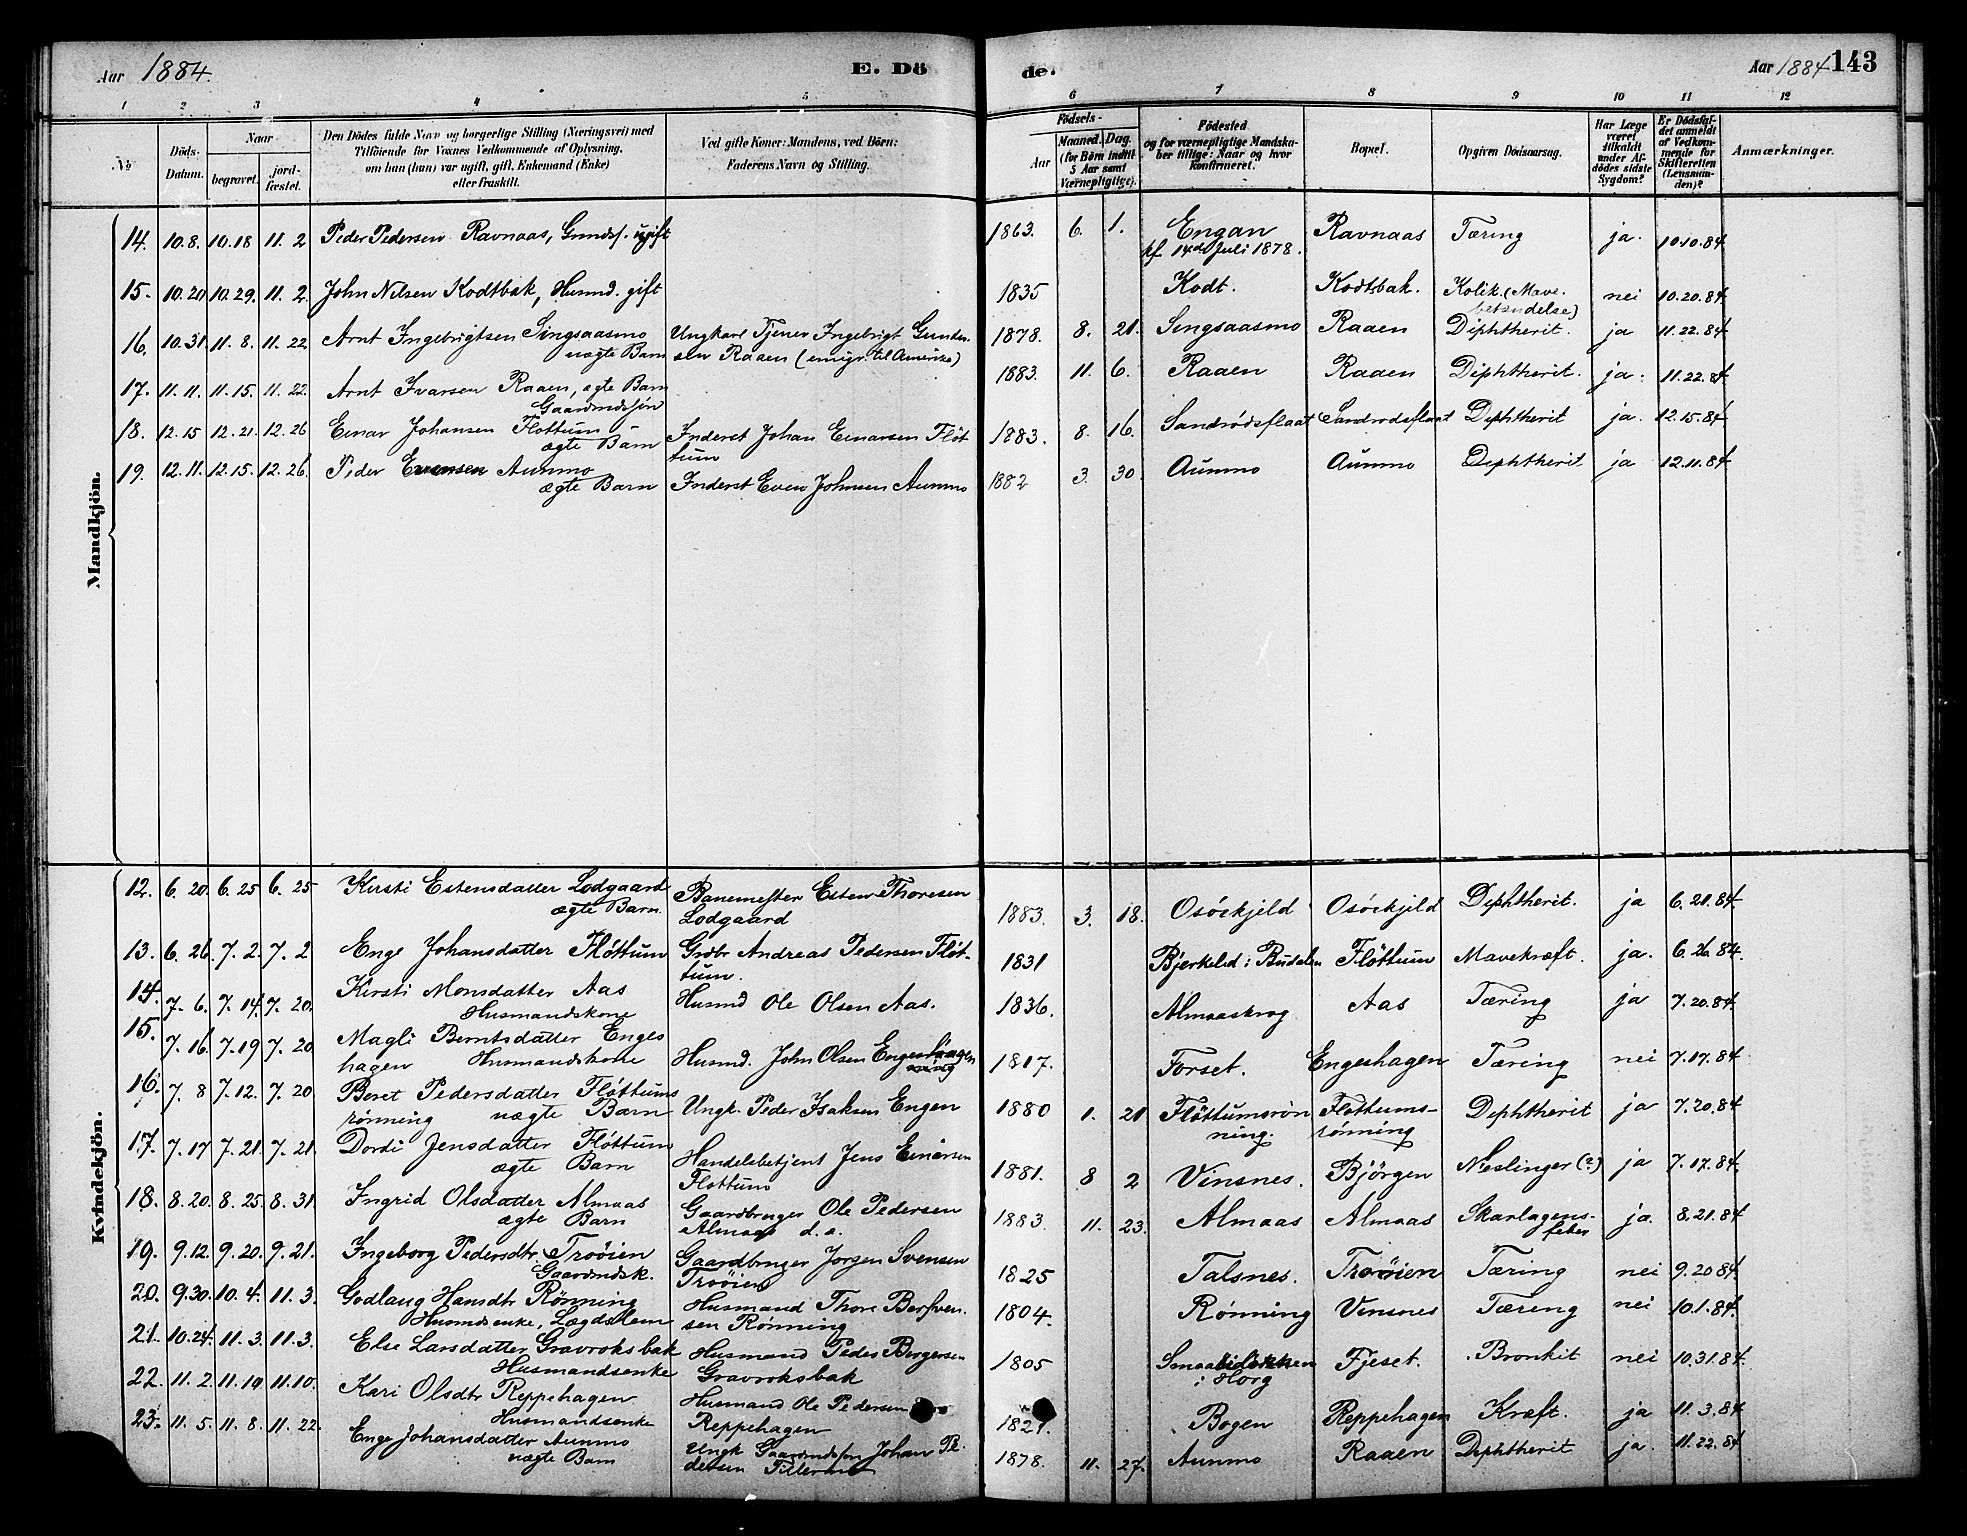 Aar 1884. E. Dö de. Aar 1884 143
1 2 3 4 5 6 7 8 9 10 11 12
No
Döds-Datum.
Naar
begravet.
jord-fæstet.
Den Dödes fulde Navn og borgerlige Stilling (Næringsvei) med
Tilföiende for Voxnes Vedkommende af Oplysning,
om han (hun) var ugift, gift, Enkemand (Enke)
eller fraskilt.
Ved gifte Koner: Mandens, ved Börn:
Faderens Navn og Stilling.
Födsels-
Aar
Maaned. Dag.
(for Börn indtil
5 Aar samt
Værnepligtige).
Födested
og for værnepligtige Mandska-
ber tillige: Naar og hvor
Konfirmeret.
Bopæl.
Opgiven Dödsaarsag.
Har Læge
været
tilkaldt
under Af-
dödes sidste
Sygdom?
Er Dödsfal-
det anmeldt
af Vedkom-
mende for
Skifteretten
(Lensman-
den)?
Anmærkninger.
Mandkjön.
14. 10.8. 10.18 11.2 Peder Pedersen Ravnaas, Gmdsf. ugift 1863. 6. 1. Engan Ravnaas Tæring ja. 10.10.84
kf 14de Juli 1878.
15. 10.20 10.29. 11.2. John Nilsen Kodtbak, Husmd. gift 1835 Kodt. Kodtsbak. Kolik (Mave- nei 10.20.84
betændelse)
16. 10.31. 11.8. 11.22 Arnt Ingebrigtsen Singsaasmo Ungkarl Tjener Ingebrigt Gunder- 1878. 8. 21. Singsaasmo Raaen Diphtherit. ja 11.22.84
uægte Barn sen Raaen (emigr. til Amerika)
17. 11.11. 11.15. 11.22. Arnt Ivarsen Raaen, ægte Barn 1883. 11. 6. Raaen Raaen Diphtherit. ja. 11.22.84
Gaardmdsjön
18. 12.15 12.21. 12.26 Einar Johansen Flottum Inderst Johan Einarsen Flöt- 1883. 8. 16. Sandrødsflaat Sandrodsflaat Diphtherit ja. 12.15.84
ægte Barn tum
19. 12.11. 12.15. 12.26. Peder Evensen Aunmo Inderst Even Johnsen Aunmo 1882 3. 30. Aunmo Aunmo Diphtherit ja 12.11.84
ægte Barn
Kvindekjön.
12. 6.20. 6.25 6.25 Kirsti Estensdatter Lodgaard Banemester Esten Thoresen 1883. 3. 18. Osöskjeld Osöskjeld Diphtherit. ja 6.21.84.
ægte Barn. Lodgaard
13. 6.26. 7.2. 7.2 Enge Johansdatter Flöttum Grdbr Andreas Pedersen Flöt- 1831 Bjerkelid i Budalen Flöttum Mavekræft. ja. 6.26.84.
tum.
14. 7.6. 7.14. 7.20. Kirsti Monsdatter Aas Husmd Ole Olsen Aas. 1836. Almaaskrog Aas Tæring ja 7.20.84
Husmandskone
15. 7.16. 7.19 7.20 Magli Berntsdatter Enges Husmd. John Olsen Engeshaagen 1817. Forset. Engeshagen Tæring nei 7.17.84
hagen Husmandskone
16. 7.8 7.12. 7.20 Beret Pedersdatter Flöttums Ungk. Peder Isaksen Engen 1880 1. 21 Flöttumsrön Flottums- Diphtherit ja 7.20.84
rönning uægte Barn ning. rönning
17. 7.17 7.21. 7.21. Dordi Jensdatter Flöttum Handelsbetjent Jens Einarsen 1881. 8 2 Vinsnes. Björgen Meslinger (?) ja 7.17.84.
ægte Barn Flottum
18. 8.20. 8.25. 8.31. Ingrid Olsdatter Almaas Gaardbruger Ole Pedersen 1883. 11. 23. Almaas Almaas Skarlagens- ja. 8.21.84
ægte Barn Almaas d.a. feber
19. 9.12. 9.20. 9.21. Ingeborg Pedersdtr. Troöien Gaardbruger Jorgen Svensen 1825 Talsnes. Troröien Tæring nei 9.20 84.
Gaardmdsk. Troöien
20. 9.30. 10.4. 11.3. Godlaug Hansdtr Rönning Husmand Thore Berfven- 1804. Rönning Vinsnes Tæring nei 10.1.84.
Husmdsenke, Lægdslem sen Rönning
21. 10.24. 11.3. 11.3. Else Larsdatter Gravroksbak Husmand Peder Bergersen 1805 Fjeset. Bronkit nei 10.31.84
Husmandsenke Gravroksbak i Horg
22. 11.2. 11.19 11.10. Kari Olsdtr Reppehagen Husmand Ole Pedersen 1821. Bogen Reppehagen Kræft. ja 11.3.84
Husmandsenke Reppehagen
23. 11.5. 11.8. 11.22. Enge Johansdatter Aunmo Ungk Gaardmdsön Johan Pe- 1878. 11. 27. Aunmo Raaen Diphtherit ja. 11.22.84
uægte Barn dersen